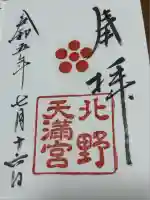 奉拝
北野
天満宮
令和五年
七月十六日